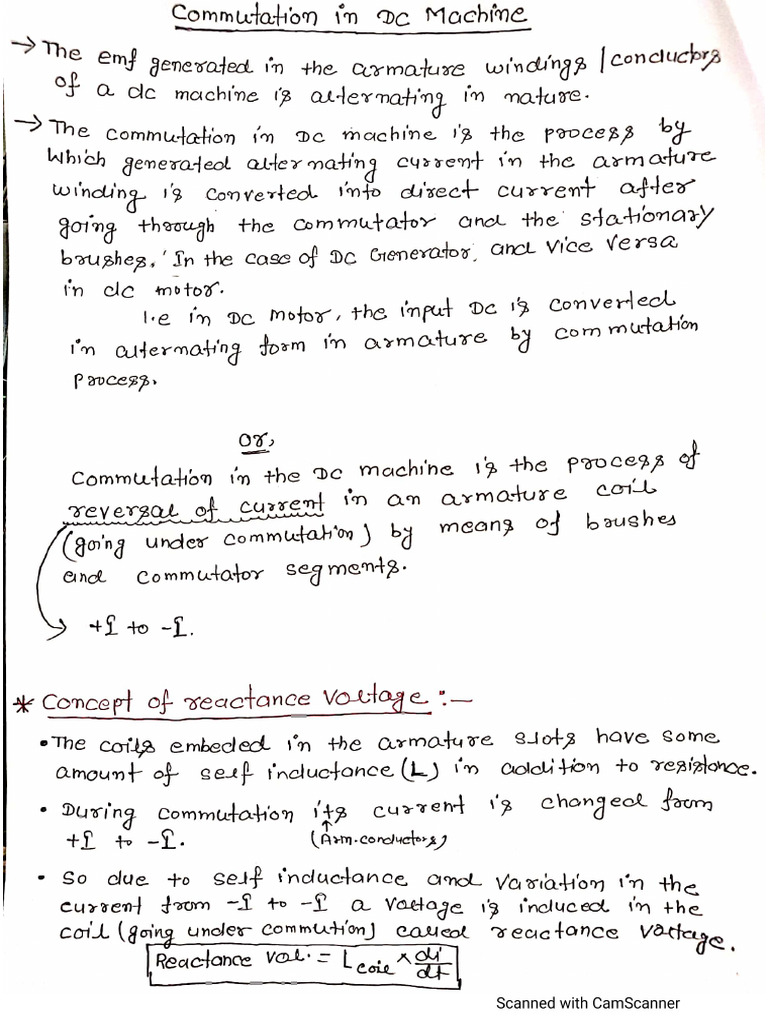 Commutation in DC Machine
→ The emf generated in the armature windings / conductors
of a dc machine is alternating in nature.
→ The commutation in DC machine is the process by
which generated alternating current in the armature
winding is converted into direct current after
going through the commutator and the stationary
brushes. 'In the case of DC Generator, and vice versa
in dc motor.
I.e in DC motor, the input DC is converted
in alternating form in armature by commutation
process.
Or,
Commutation in the DC machine is the process of
reversal of current in an armature coil
(going under commutation) by means of brushes
and commutator segments.
→ +I to -I.
* Concept of reactance voltage :-
• The coils embeded in the armature slots have some
amount of self inductance (L) in addition to resistance.
• During commutation its current is changed from
+I to -I. ↑ (Arm. conductors)
• So due to self inductance and variation in the
current from -I to -I a voltage is induced in the
coil (going under commution) called reactance voltage.
Reactance vol. = L coil × di/dt
Scanned with CamScanner